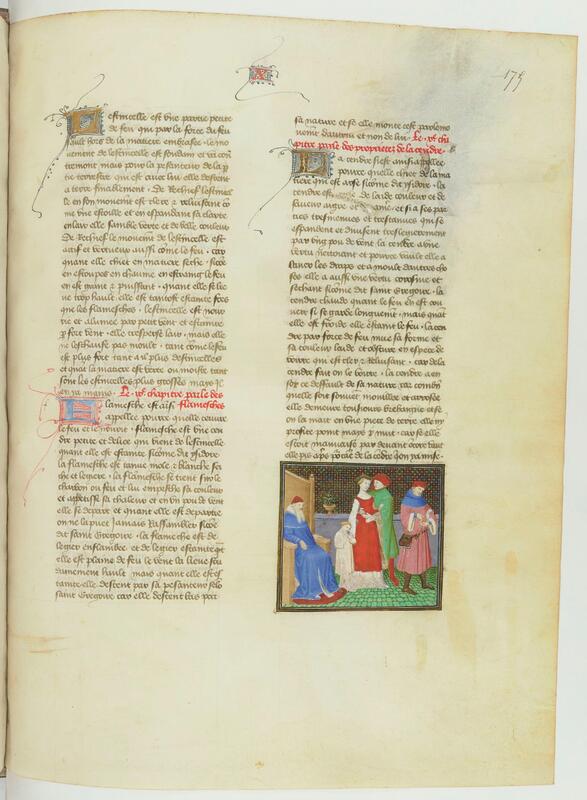 X
175
Estincelle est vne partie petite
de feu qui par la force du feu
sault hors de la matiere embrasee. le mo
uement de lestincelle est soudain et va con
tremont mais pour la pesanteur de la p
tie terrestre qui est auec lui elle descent
a terre finalement. De Rechief lestincel
le en son mouuement est clere et reluisant co
me vne estoille et en espandant sa clarte
en lair elle semble verte et de belle couleur
De Rechief le mouuement de lestincelle est
actif et vertueux aussi come le feu. car
quant elle chiet en matiere seche. sicoe
en estoupes en chaume en estraing le feu
en est grant et puissant. quant elle se lie
ue trop hault elle est tantost estainte
que les flamesches. lestincelle est nour
rie et alumee par petit vent et estainte
p fort vent. elle trespasse lair. mais elle
ne lestchaufe pas moult. tant come le feu
est plus fort tant a il plus destincelles
et quant la matiere est verte ou moiste tant
sont les estincelles plus grosses mais il
en ya mains. Le chapitre parle des
flamesches
La mesche est ainsi
appellee pource quelle couure
le feu et le nourrit. flamesche est vne cen
dre petite et deliee qui vient de lestincelle
quant elle est estainte sicome dit ysidore
la flamesche est tenue mole et blanche se
che et legiere. la flamesche se tient sur le
charbon ou feu et lui empesche sa couleur
et appetisse sa chaleur et en vn pou de vent
elle se depart et quant elle est departie
on ne la puet Jamais Rassembler sicoe
dit saint Gregoire. la flamesche est de
legier enflambee et de legier estainte
elle est plaine de feu le vent la lieue sou
dainement hault mais quant elle est
tainte elle descent par sa pesanteur selo
saint Gregoire car elle descent bas par
sa nature et se elle monte cest par le mo
uement dautrui et non de lui. Le chap
pitre parle des proprietez de la cendre.
La cendre si est ainsi appellee
pource quelle chiet de la ma
tiere qui est arse sicome dit ysidore. la
cendre est de laide couleur et de
saueur aigre et si a ses par
ties tresmenues et trestanures qui se
espandent et diuisent treslegierement
par vng pou de vent la cendre a vne
vertu nettoiant et pource vault elle a
lauer les draps et a moult dautres cho
ses elle a aussi vne vertu corosiue et
sechant sicome dit saint Gregoire. la
cendre chaude quant le feu en est cou
uert si se garde longuement. mais quat
elle est froide elle estaint le feu. la cen
dre par force de feu mue sa forme et
sa couleur laide et obscure en espece de
voirre qui est cler et Reluisant. car de la
cendre fait on le voirre. la cendre a en
soy ce deffault de sa nature car combie
quelle soit souuent mouillee et arrosee
elle demeure tousiours brehaigne et se
on la met en vne piece de terre elle ny
prosite point mais y nuit. car se elle
estoit mauuaise par deuant encore vault
elle pis apres pour la cendre qon ya mise.